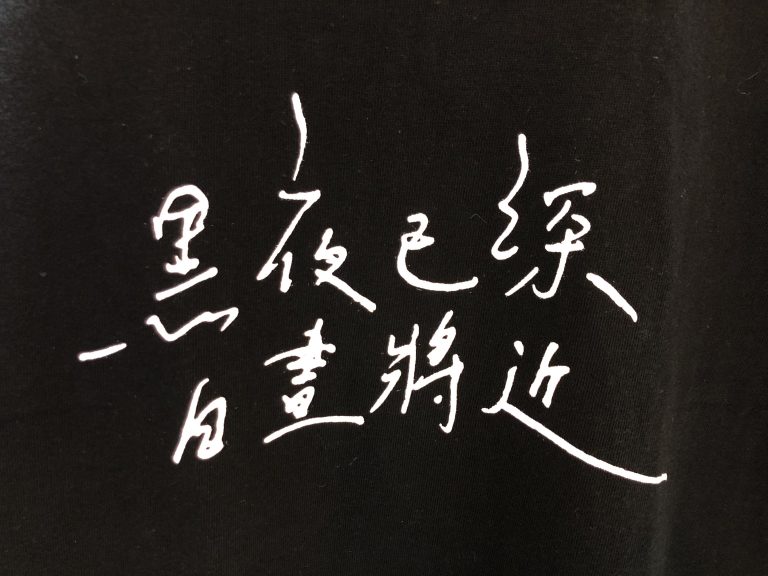 黑夜已深
白晝將近